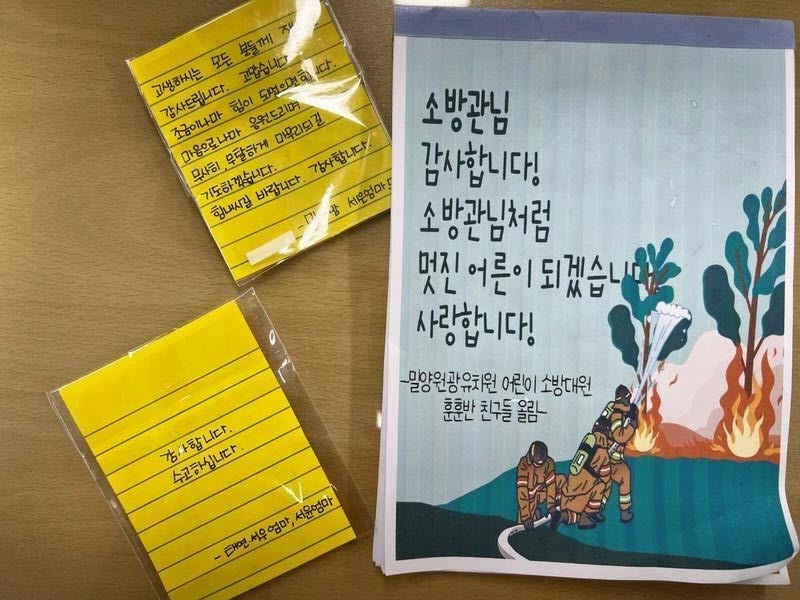 고생하시는 모든 분들께
감사드립니다. 고맙습니다.
조금이나마 힘이 되었으면합니다.
마음으로나마 응원드리며
무사히, 무탈하게 마무리되길
기도하겠습니다.
힘내시길 바랍니다. 감사합니다.
세은엄마
감사합니다.
수고하십니다.
- 태연.서우 엄마, 서윤엄마
소방관님
감사합니다!
소방관님처럼
멋진 어른이 되겠습니다.
사랑합니다!
-밀양원광유치원 어린이 소방대원
훈훈반 친구들 올림-